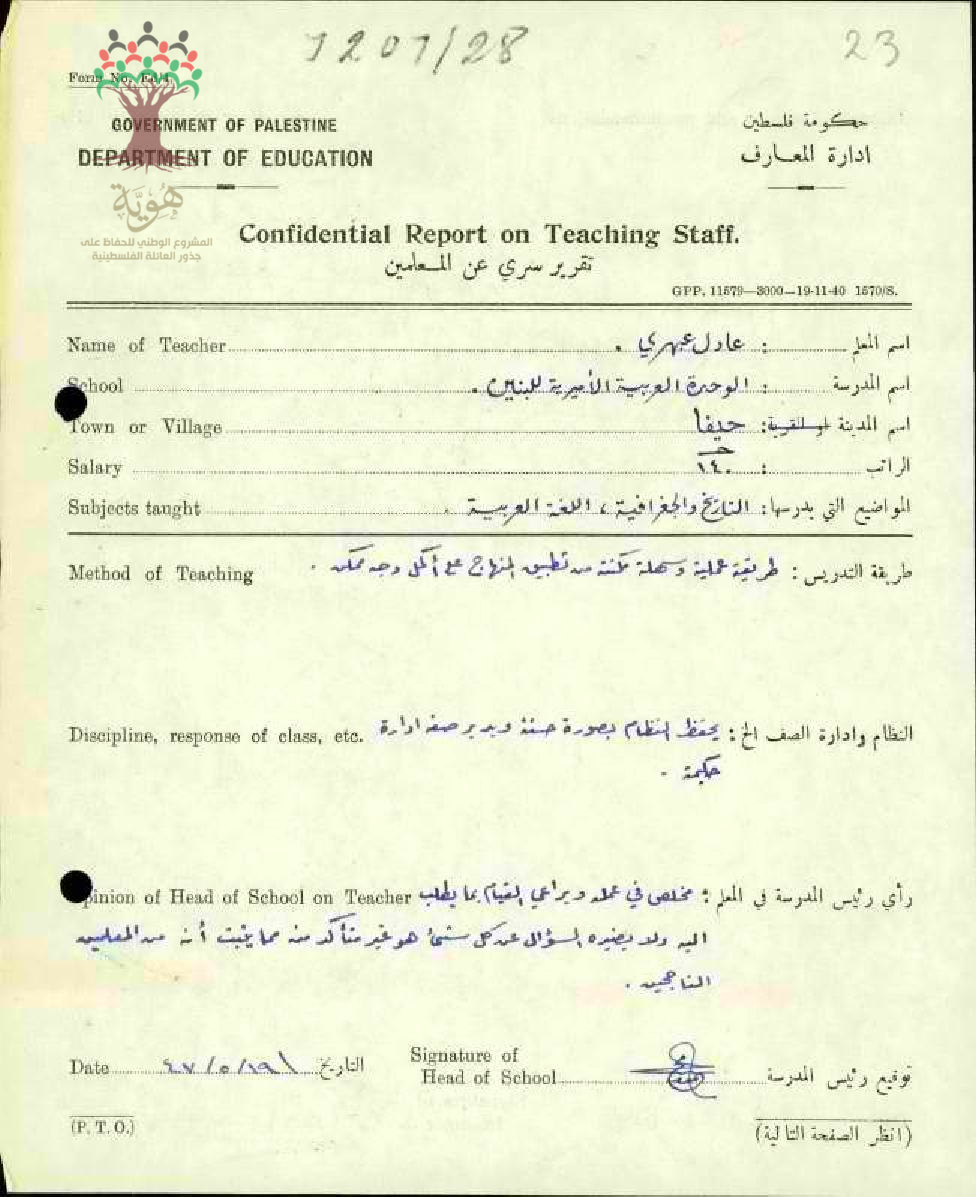 7207/28
23
Form No. Ed/4
GOVERNMENT OF PALESTINE
حكومة فلسطين
DEPARTMENT OF EDUCATION
ادارة المعارف
هُوِيَّة
المشروع الوطني للحفاظ على
جذور العائلة الفلسطينية
Confidential Report on Teaching Staff.
تقرير سري عن المعلمين
GPP. 11579—3000—19-11-40 1570/S.
Name of Teacher عادل عبهري . : اسم المعلم
School الوحدة العربية الأميرية للبنين . : اسم المدرسة
Town or Village حيفا : اسم المدينة او القرية
Salary ١٤٠ : الراتب
Subjects taught التاريخ والجغرافية ، اللغة العربية . : المواضيع التي يدرسها
Method of Teaching طريقة التدريس : طريقة عملية وسهلة مكنته من تطبيق المنهاج على أكمل وجه ممكن .
Discipline, response of class, etc. النظام وادارة الصف الخ : يحفظ النظام بصورة حسنة ويدير صفه ادارة
حكيمة .
Opinion of Head of School on Teacher رأي رئيس المدرسة في المعلم : مخلص في عمله ويراعي القيام بما يطلب
اليه ولا يضيره السؤال عن كل شيء هو غير متأكد منه مما يثبت أنه من المعلمين
الناجحين .
Date ١٩/٥/٤٧ التاريخ
Signature of
Head of School توقيع رئيس المدرسة
(P. T. O.)
(انظر الصفحة التالية)